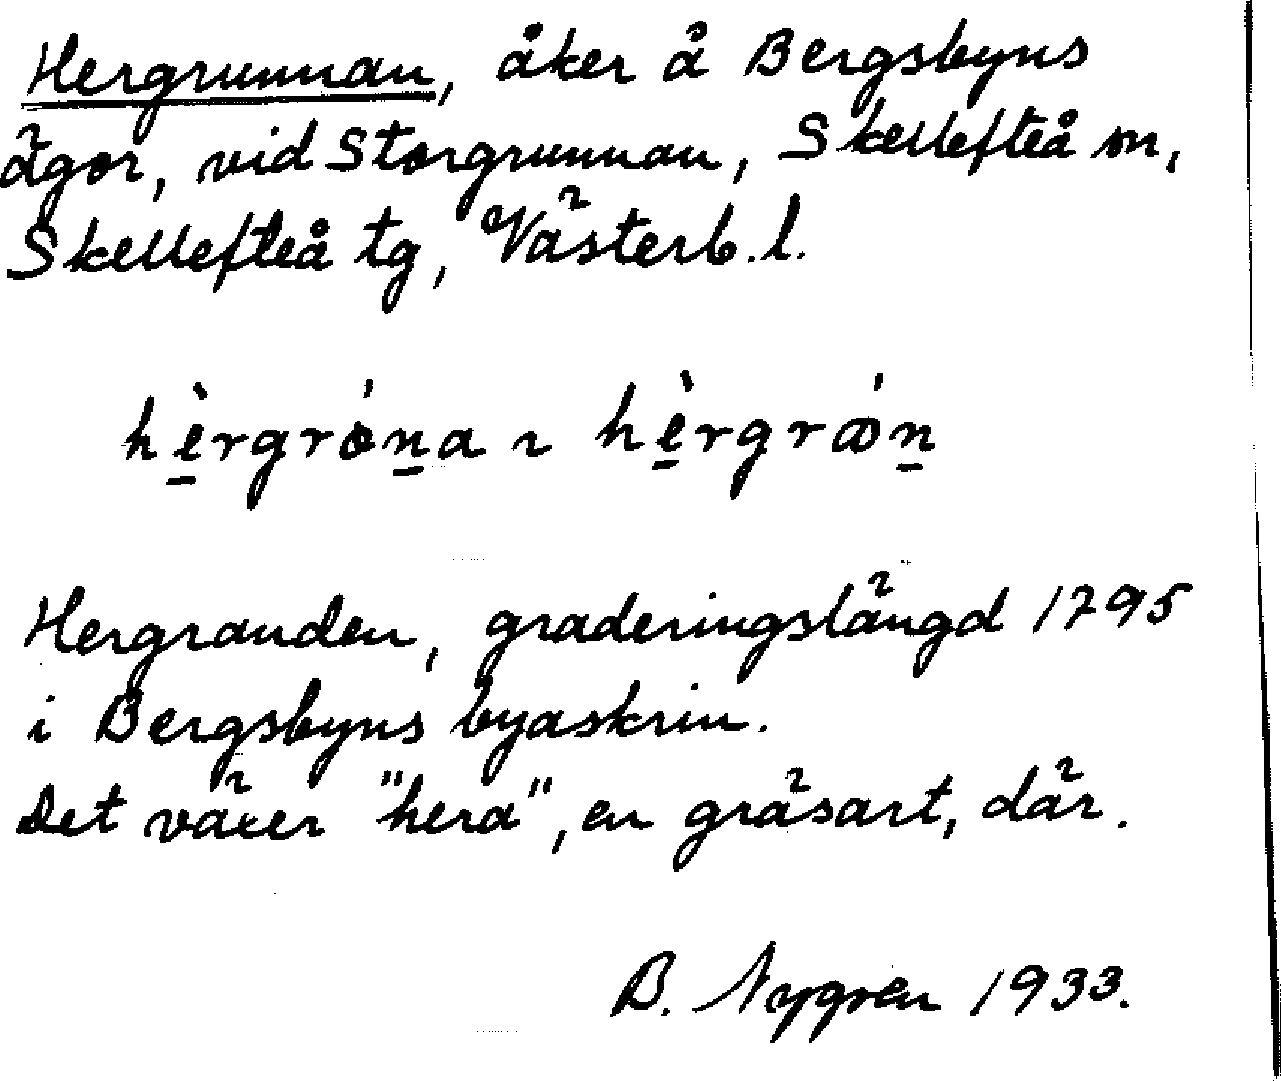 Hergrunnan, åker å Bergsbyns
ägor, vid Storgrunnan, Skellefteå sn,
Skellefteå tg, Västerb. l.
hè̠rgróṉa ~ hè̠rgrꝏ́ṉ
Hergranden, graderingslängd 1795
i Bergsbyns byaskrin.
Det växer "hera", en gräsart, där.
B. Nygren 1933.